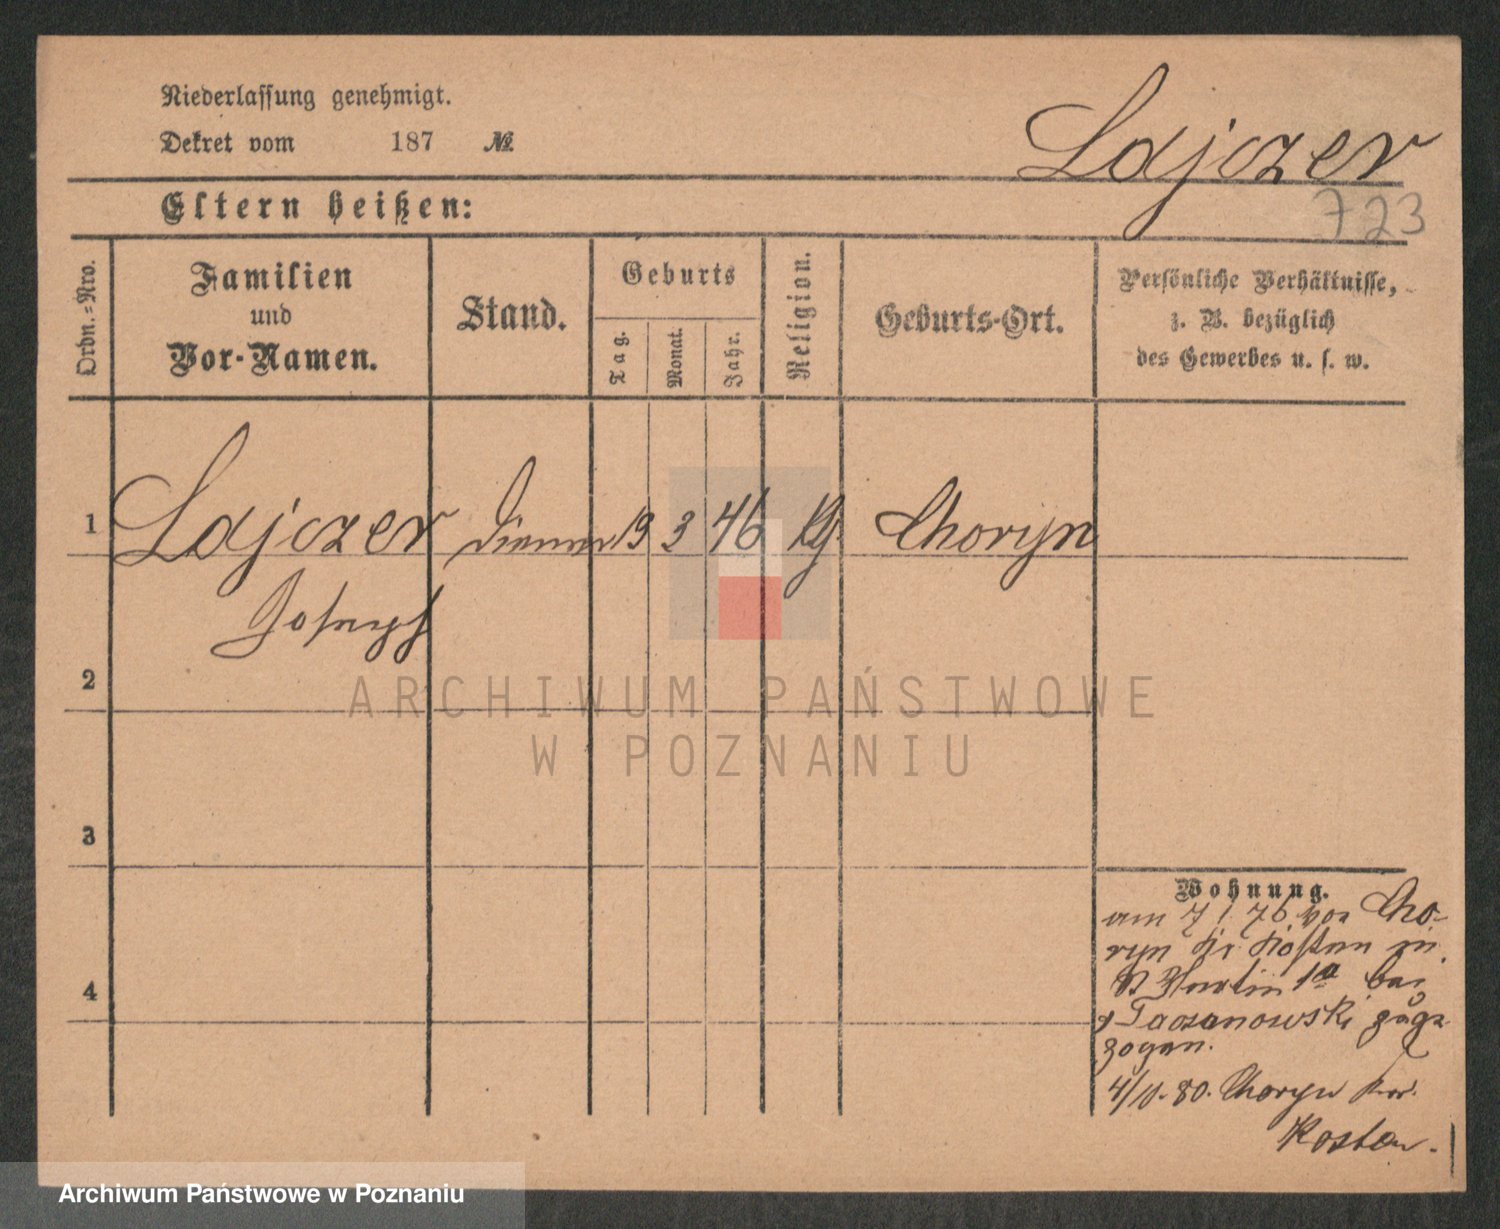 Niederlassung genehmigt.
Dekret vom 187 №
Lajczer
Eltern heißen:
723
Ordn.-Nro.
Familien
und
Vor-Namen.
Stand.
Geburts
Tag.
Monat.
Jahr.
Religion.
Geburts-Ort.
Persönliche Verhältnisse,
z. B. bezüglich
des Gewerbes u. s. w.
1 Lajczer Diener 19 3 46 Choryn
Joseph
2
ARCHIWUM PAŃSTWOWE
W POZNANIU
3
Wohnung.
am 7/1 76 von Cho-
ryn Kr. Kosten in
St Martin 1a bei
v Taczanowski zuge
zogen.
4
4/10. 80. Choryn Kr.
Kosten.
Archiwum Państwowe w Poznaniu